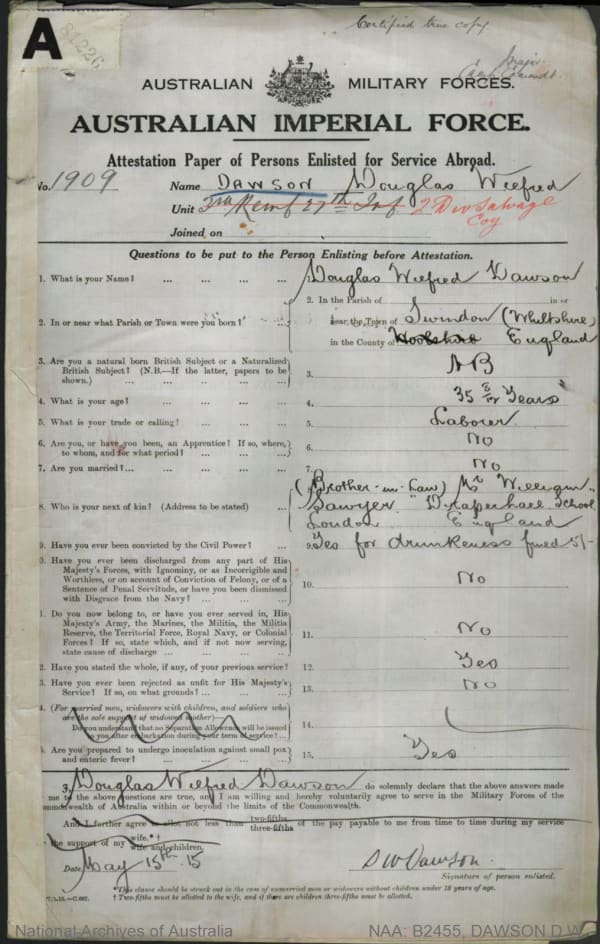 Certified true copy
A
Major
AUSTRALIAN MILITARY FORCES.
AUSTRALIAN IMPERIAL FORCE.
Attestation Paper of Persons Enlisted for Service Abroad.
No. 1909 Name DAWSON Douglas Wilfred
Unit 3rd Reinf 27th Inf 2 Div Salvage Coy
Joined on
Questions to be put to the Person Enlisting before Attestation.
1. What is your Name? ... ... ... ... Douglas Wilfred Dawson
2. In or near what Parish or Town were you born? ... ... 2. In the Parish of in or
near the Town of Swindon (Whiltshire)
in the County of England
3. Are you a natural born British Subject or a Naturalized
British Subject? (N.B.—If the latter, papers to be
shown.) ... ... ... ... 3. NB
4. What is your age? ... ... ... ... 4. 35 8/12 Years
5. What is your trade or calling? ... ... ... 5. Laborer
6. Are you, or have you been, an Apprentice? If so, where,
to whom, and for what period? ... ... ... 6. No
7. Are you married?... ... ... ... ... 7. No
8. Who is your next of kin? (Address to be stated) ... (Brother-in-Law) Mr William
Sawyer "Draperhall School"
London England
9. Have you ever been convicted by the Civil Power? ... 9. Yes for drunkeness fined 5/-
0. Have you ever been discharged from any part of His
Majesty's Forces, with Ignominy, or as Incorrigible and
Worthless, or on account of Conviction of Felony, or of a
Sentence of Penal Servitude, or have you been dismissed
with Disgrace from the Navy? ... ... ... 10. No
1. Do you now belong to, or have you ever served in, His
Majesty's Army, the Marines, the Militia, the Militia
Reserve, the Territorial Force, Royal Navy, or Colonial
Forces? If so, state which, and if not now serving,
state cause of discharge ... ... ... ... 11. No
2. Have you stated the whole, if any, of your previous service? 12. Yes
3. Have you ever been rejected as unfit for His Majesty's
Service? If so, on what grounds? ... ... ... 13. No
4. (For married men, widowers with children, and soldiers who
are the sole support of widowed mother)—
Do you understand that no Separation Allowance will be issued
to you after embarkation during your term of service? ... 14.
5. Are you prepared to undergo inoculation against small pox
and enteric fever? ... ... ... ... 15. Yes
I, Douglas Wilfred Dawson do solemnly declare that the above answers made
me to the above questions are true, and I am willing and hereby voluntarily agree to serve in the Military Forces of the
mmonwealth of Australia within or beyond the limits of the Commonwealth.
And I further agree to allot not less than two-fifths three-fifths of the pay payable to me from time to time during my service
the support of my wife.*†
wife and children.
Date May 15th 15 D W Dawson.
Signature of person enlisted.
*This clause should be struck out in the case of unmarried men or widowers without children under 18 years of age.
† Two-fifths must be allotted to the wife, and if there are children three-fifths must be allotted.
National Archives of Australia NAA: B2455, DAWSON D W